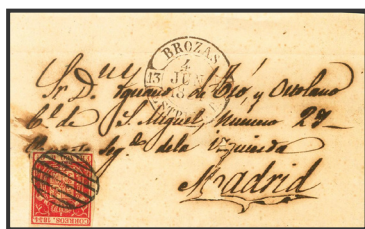 BROZAS
4
13 JUN
Sr. D. Ignacio del Rió, y Ortolano
C.e de S. Miguel, numero 27-
de la Izquierda
Madrid
CORREOS. 1854.